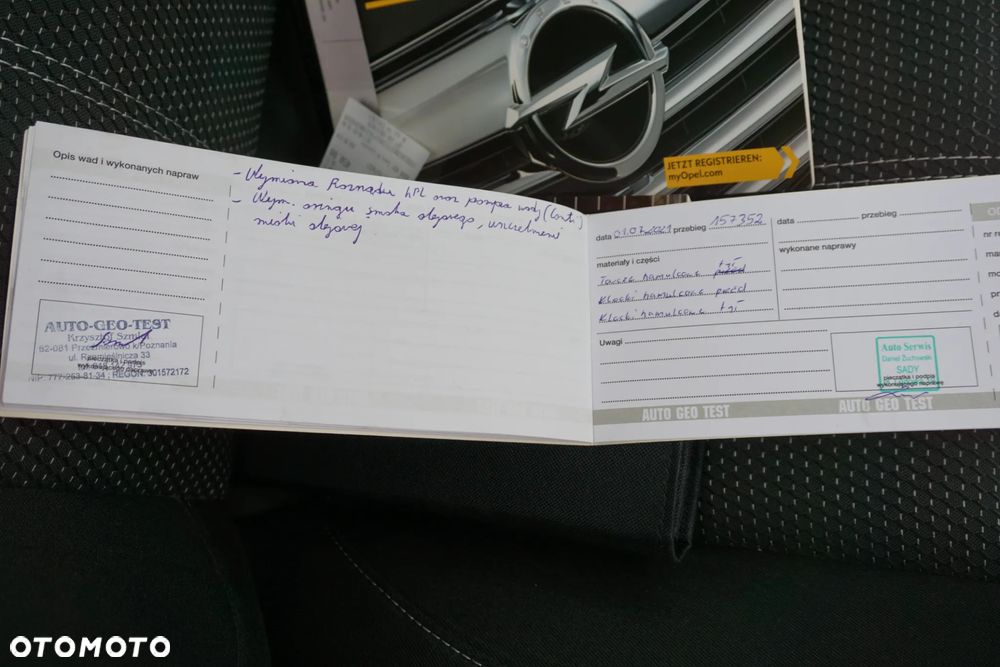 OPEL
JETZT REGISTRIEREN:
myOpel.com
Opis wad i wykonanych napraw
- Wymiana Rozrządu kpl oraz pompa wody (Cont.)
- Wym. oringu smoka olejowego, uszczelnienie
miski olejowej
AUTO-GEO-TEST
Krzysztof Szmit
62-081 Przeźmierowo k/Poznania
ul. Rzemieślnicza 33
pieczątka i podpis
wykonującego naprawę
NIP: 777-253-81-34 ; REGON: 301572172
data 01.07.2021 przebieg 157352
materiały i części
Tarcze hamulcowe przód tył
Klocki hamulcowe przód
Klocki hamulcowe tył
Uwagi
Auto Serwis
Daniel Żuchowski
SADY
pieczątka i podpis
wykonującego naprawę
AUTO GEO TEST
AUTO GEO TEST
data przebieg
wykonane naprawy
OTOMOTO